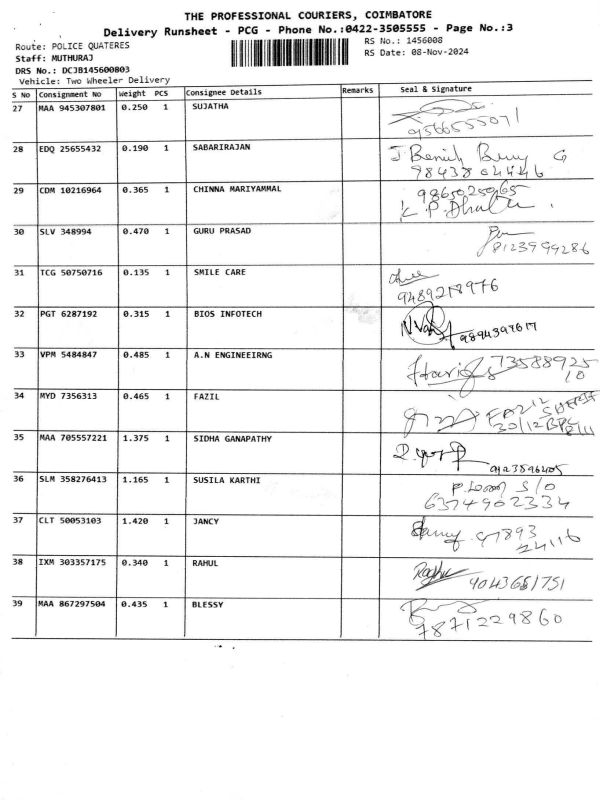 THE PROFESSIONAL COURIERS, COIMBATORE
Delivery Runsheet - PCG - Phone No.:0422-3505555 - Page No.:3
Route: POLICE QUATERES
RS No.: 1456008
Staff: MUTHURAJ
RS Date: 08-Nov-2024
DRS No.: DCJB145600803
Vehicle: Two Wheeler Delivery
S No Consignment No Weight PCS Consignee Details Remarks Seal & Signature
27 MAA 945307801 0.250 1 SUJATHA
9566555071
28 EDQ 25655432 0.190 1 SABARIRAJAN
9843804446
29 CDM 10216964 0.365 1 CHINNA MARIYAMMAL
9865025065
30 SLV 348994 0.470 1 GURU PRASAD
8123999286
31 TCG 50750716 0.135 1 SMILE CARE
9489218976
32 PGT 6287192 0.315 1 BIOS INFOTECH
9894397617
33 VPM 5484847 0.485 1 A.N ENGINEEIRNG
73588925
10
34 MYD 7356313 0.465 1 FAZIL
FAZIL
30/12
35 MAA 705557221 1.375 1 SIDHA GANAPATHY
36 SLM 358276413 1.165 1 SUSILA KARTHI
S/O
6374902334
37 CLT 50053103 1.420 1 JANCY
Jancy 97893
24116
38 IXM 303357175 0.340 1 RAHUL
Raghu 9043681751
39 MAA 867297504 0.435 1 BLESSY
7871229860